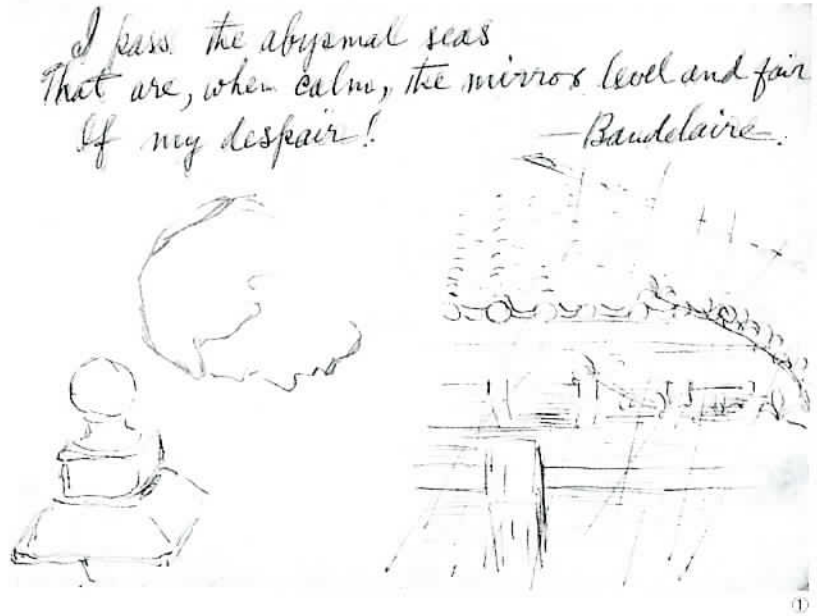 I pass the abysmal seas
That are, when calm, the mirror level and fair
Of my despair!
—Baudelaire.
①